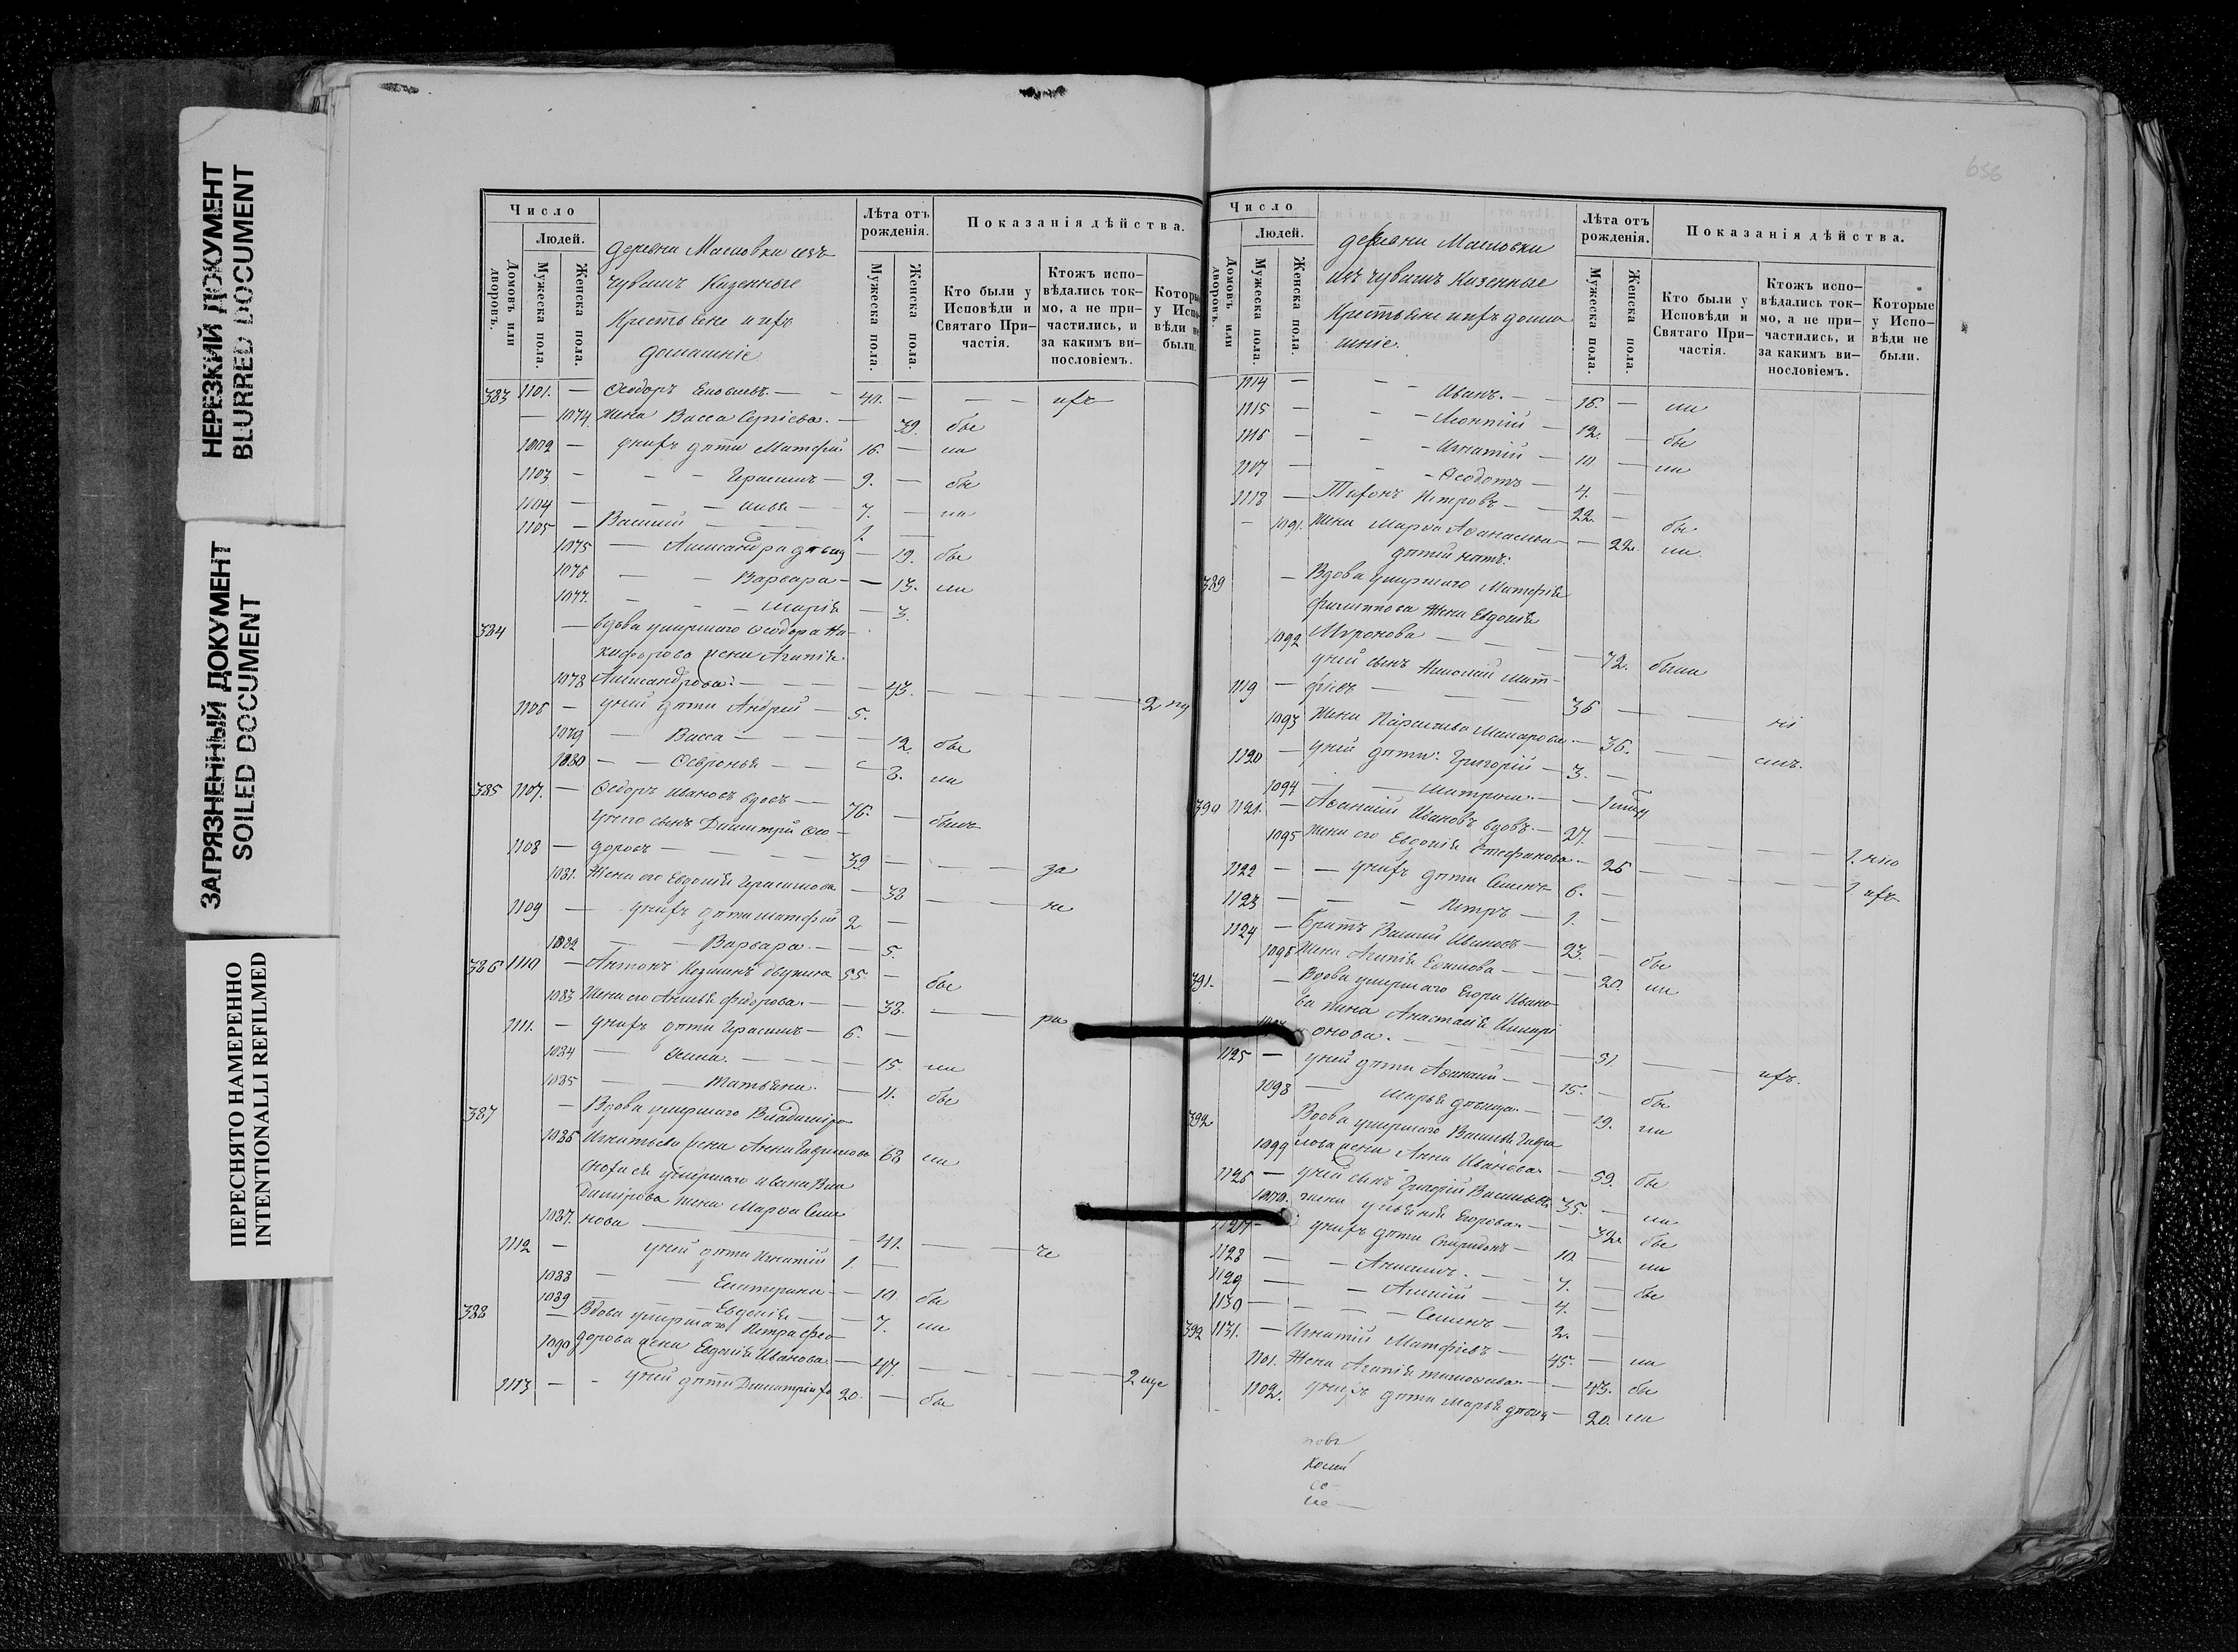 НЕРЕЗКИЙ ДОКУМЕНТ
BLURRED DOCUMENT
ЗАГРЯЗНЕННЫЙ ДОКУМЕНТ
SOILED DOCUMENT
ПЕРЕСНЯТО НАМЕРЕННО
INTENTIONALI REFILMED
Число
Людей.
Домовъ или дворовъ.
Мужеска пола.
Женска пола.
деревни Масловки изъ
чувашъ Казенные
Крестьяне и ихъ
домашніе
Лѣта отъ рожденія.
Мужеска пола.
Женска пола.
Показанія дѣйства.
Кто были у Исповѣди и Святаго Причастія.
Ктожъ исповѣдались токмо, а не причастились, и за какимъ винословіемъ.
Которые у Исповѣди не были.
383 1101. — Ѳеодоръ — 40. — ихъ
— 1074. жена Васса Сергіева. — 39. бы
1102 — у нихъ дѣти Матфій 16. — ли
1103 — Герасимъ — 9. — бы
1104 — Илья — 7. — ли
1105 — Василий — 1. —
1075 — Александра дѣвица — 19. бы
1076 — Варвара — 13. ли
1077. — Марія — 3.
384 — вдова умершаго Ѳеодора Ни-
кифорова жена Агапія
1078 Александрова — 43. —
1106 — у ней дѣти Андрей — 5. 2 ну
1079 — Васса — 12. бы
1080 — Ѳевронья — 8. ли
385 1107. — Ѳедоръ Ивановъ вдовъ — 76. — былъ
у него сынъ Димитрій Ѳео-
1108 — доровъ — 39 — за
1081. Жена его Евдокія Герасимова — 38 — не
1109 — у нихъ дѣти Матфій 2 —
1082 — Варвара — 5.
386 1110 — Антонъ Козминъ 55. — бы
1083 Жена его Анисья Федорова. — 38. — ра
1111. — у нихъ дѣти Герасимъ — 6. —
1084 — 15. ли
1085 — Татьяна. — 11. бы
387 — Вдова умершаго Владиміра
1086 Игнатьева жена Анна Гаврилова 68 ли
сноха ея умершаго Ивана Вла
димірова жена Марѳа Семе
1087. нова — 41. — че
1112 — у ней дѣти Игнатій 1. —
1088 — Екатерина — 10. бы
1089 — Евдокія — 7. ли
388 — Вдова умершаго Петра Ѳео-
1090 дорова жена Евдокія Иванова. — 47. — 2 ще
1113 — у ней дѣти Димитрій 20. — бы
656
Число
Людей.
Домовъ или дворовъ.
Мужеска пола.
Женска пола.
деревни Масловки
изъ чувашъ Казенные
Крестьяне и ихъ дома
шніе.
Лѣта отъ рожденія.
Мужеска пола.
Женска пола.
Показанія дѣйства.
Кто были у Исповѣди и Святаго Причастія.
Ктожъ исповѣдались токмо, а не причастились, и за какимъ винословіемъ.
Которые у Исповѣди не были.
1114 — Иванъ. — 16. — ли
1115 — Леонтій — 12. — бы
1116 — Игнатій — 10 — ли
1117 — Ѳеодотъ — 4. —
1118 — Тихонъ Петровъ — 22. — бы
— 1091. Жена Марѳа Аѳанасьева — 22. ли
дѣтей нѣтъ.
389 — Вдова умершаго Матфія
Филиппова Жена Евдокія
1092 Миронова — 72. была
у ней сынъ Николай Мат-
1119 — фіевъ — 36 —
1093 Жена Параскева Макарова — 36. —
1120 — у ней дѣти: Григорій — 3. —
1094 — Матрона. — 1
390 1121. — Аѳанасій Ивановъ вдовъ. — 27. —
1095 Жена его Евдокія Стефанова. — 26 —
1122 — у нихъ дѣти Семенъ 6. — 1 ихъ
1123 — Петръ — 1. —
1124 — Братъ Василий Ивановъ — 23. — бы
1096 Жена Агапія Ефимова — 20. ли
391. — Вдова умершаго Егора Ивано-
ва жена Анастасія
онова. — 51. — ихъ.
1125 — у ней дѣти Аѳанасій — 15. — бы
1098 — Марья дѣвица. — 19. ли
392 Вдова умершаго Василья Гаври
1099 лова жена Анна Иванова — 59. бы
1126 — у ней сынъ Григорій Васильевъ 35. — ли
жена Ульянія Егорова — 32. бы
1127 — у нихъ дѣти Спиридонъ — 10 — ли
1128 — 7. — бы
1129 — 4. —
1130 — Семенъ — 2. —
392 1131. — Игнатій Матфіевъ — 45. — ли
1101. Жена Агапія Тимофеева — 43. бы
1102. у нихъ дѣти Марья дѣвица — 20. ли